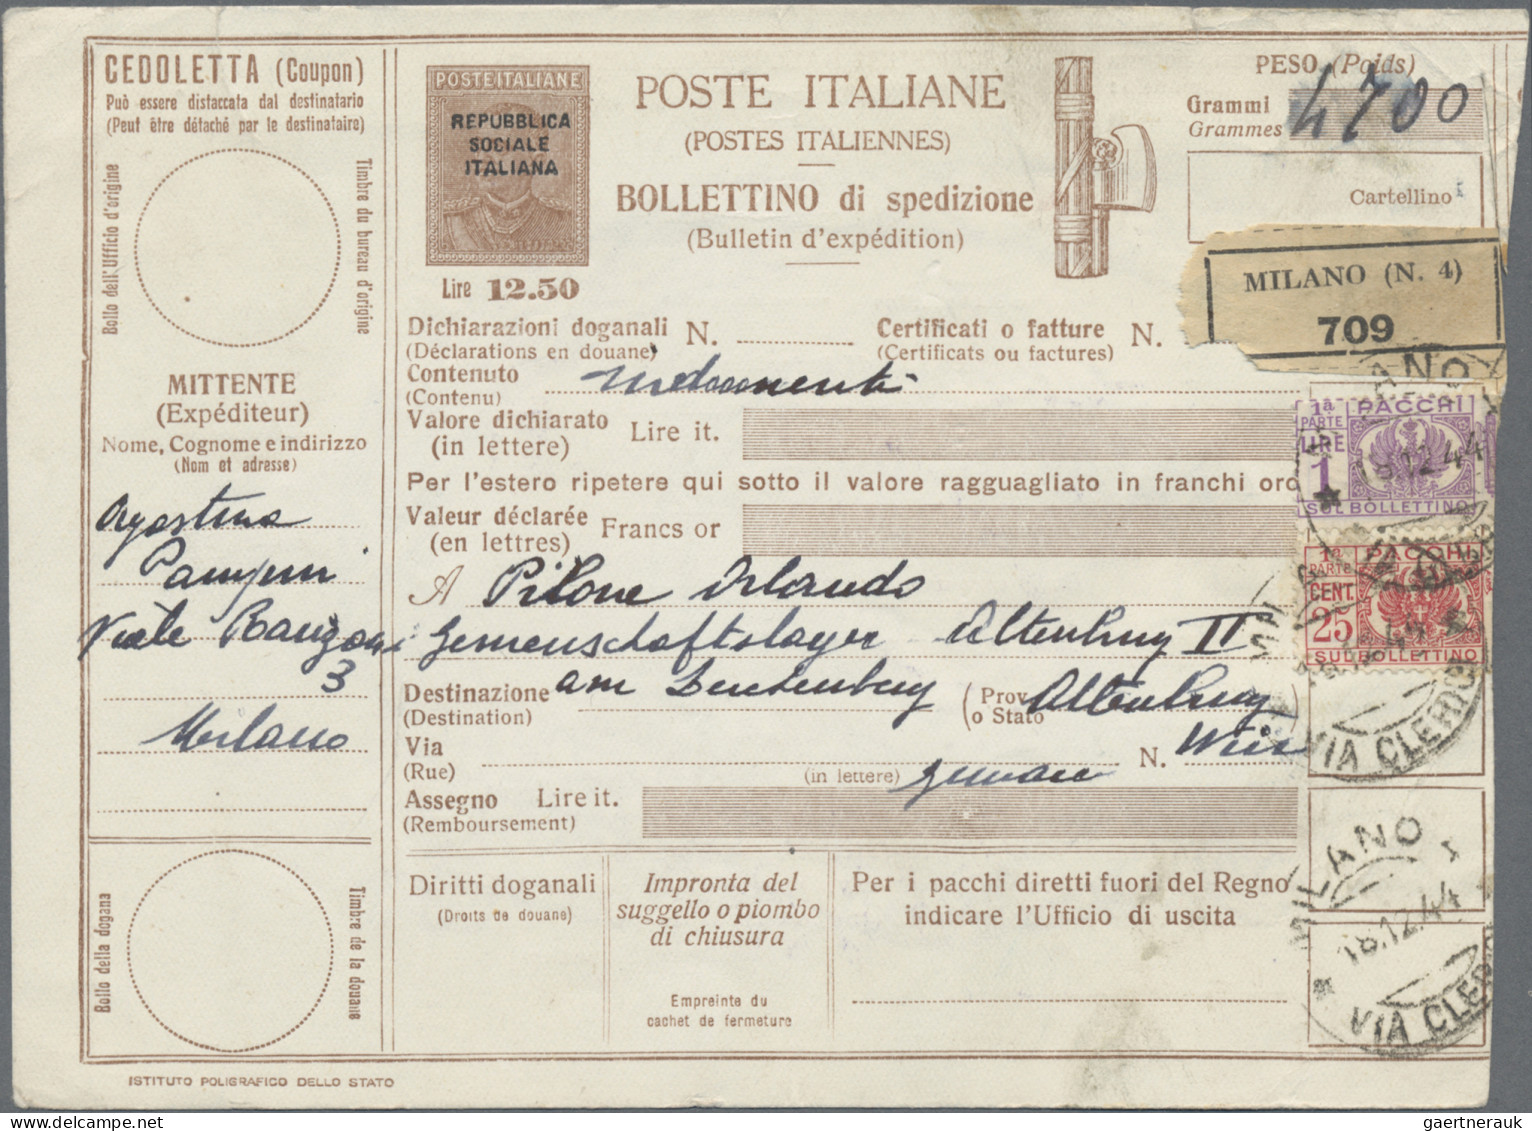 CEDOLETTA (Coupon)
Può essere distaccata dal destinatario
(Peut être détaché par le destinataire)
Bollo dell'Ufficio d'origine
Timbre du bureau d'origine
MITTENTE
(Expéditeur)
Nome, Cognome e indirizzo
(Nom et adresse)
Agostino
Viale
3
Milano
Bollo della dogana
Timbre de la douane
POSTE ITALIANE
REPUBBLICA
SOCIALE
ITALIANA
Lire 12.50
POSTE ITALIANE
(POSTES ITALIENNES)
BOLLETTINO di spedizione
(Bulletin d'expédition)
PESO (Poids)
Grammi
Grammes
4700
Cartellino
MILANO (N. 4)
709
Dichiarazioni doganali N.
(Déclarations en douane)
Certificati o fatture N.
(Certificats ou factures)
Contenuto
(Contenu)
Valore dichiarato
(in lettere)
Lire it.
Per l'estero ripetere qui sotto il valore ragguagliato in franchi oro
Valeur déclarée
(en lettres)
Francs or
A Pilone Orlando
Gemenschaftslager Altenburg II
Destinazione am
(Destination)
(Prov.
o Stato
Altenburg
Via
(Rue)
N.
(in lettere)
Assegno Lire it.
(Remboursement)
1ª PARTE
PACCHI
LIRE
1
SUL BOLLETTINO
1ª PARTE
PACCHI
CENT.
25
SUL BOLLETTINO
MILANO
18.12.44
VIA CLERICI
MILANO
18.12.44
VIA CLERI
Diritti doganali
(Droits de douane)
Impronta del
suggello o piombo
di chiusura
Empreinte du
cachet de fermeture
Per i pacchi diretti fuori del Regno
indicare l'Ufficio di uscita
ISTITUTO POLIGRAFICO DELLO STATO
gaertnerauk